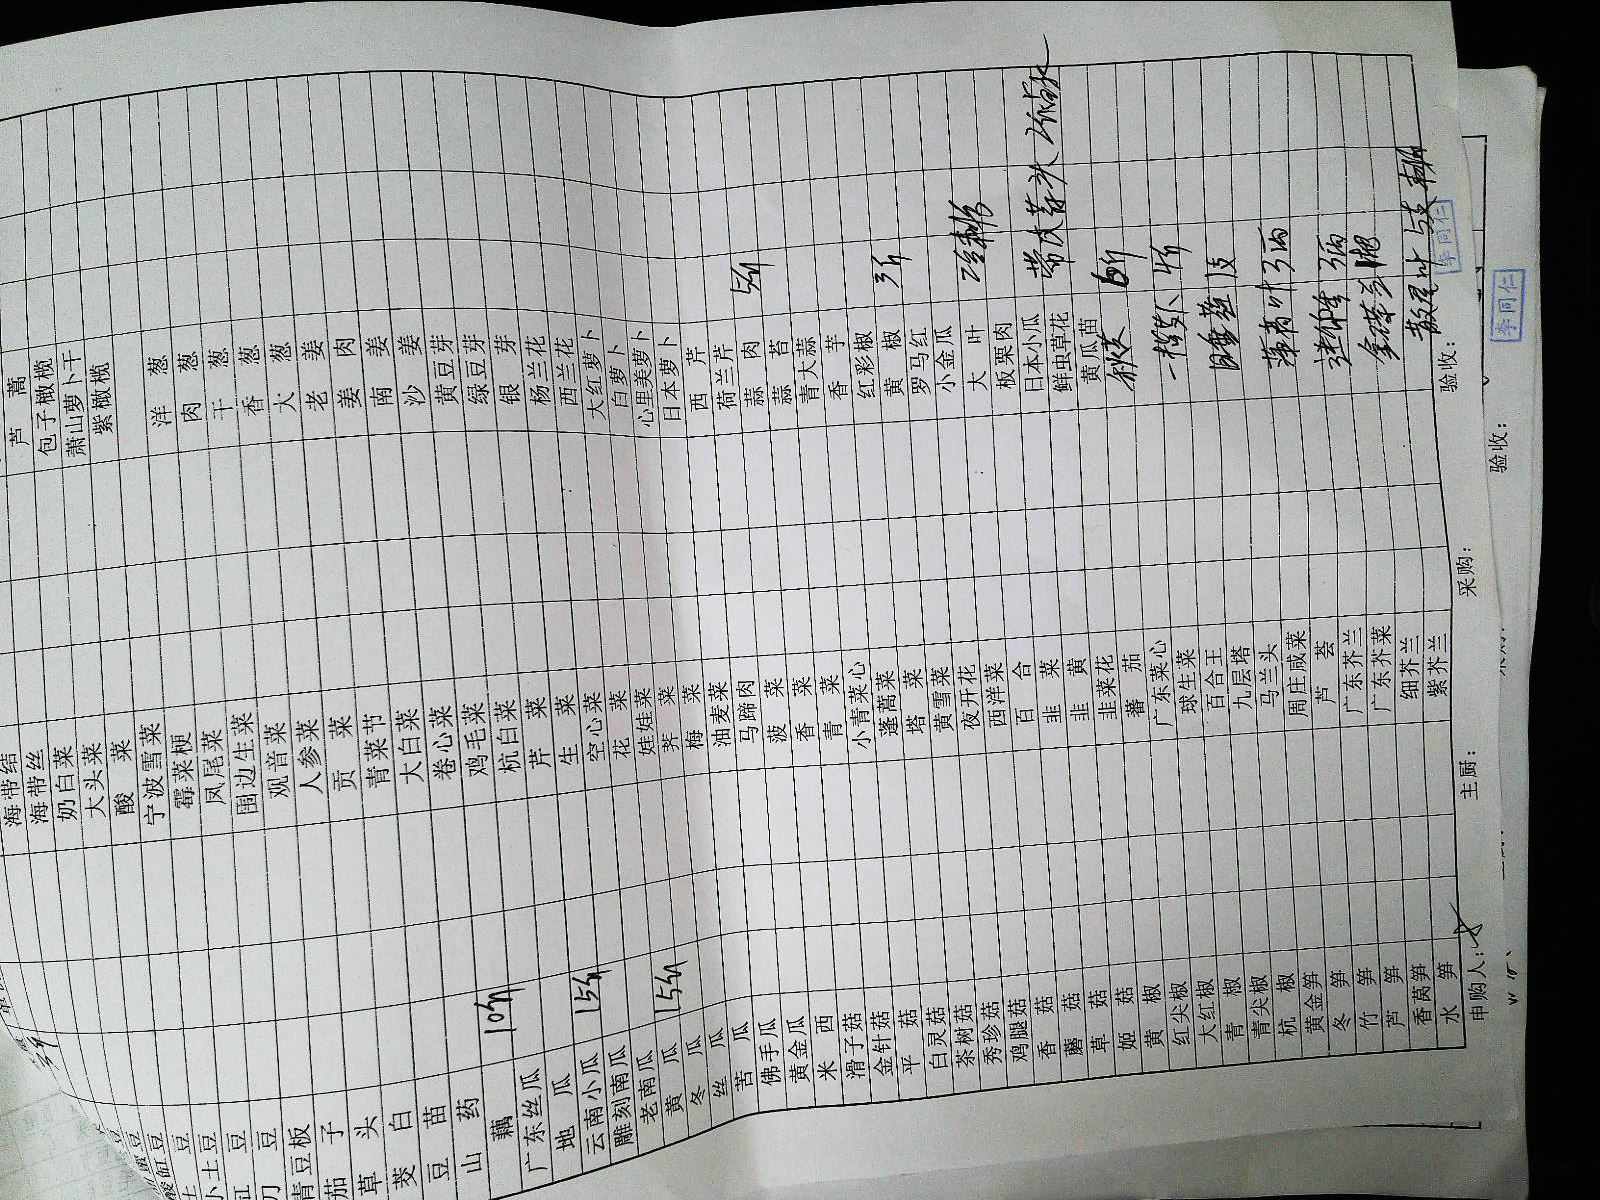 酸豇豆
土豆
小土豆
豇豆
刀豆
青豆板
茄子
草头
茭白
豆苗
山药
藕 10斤
广东丝瓜
地瓜
云南小瓜 15斤
雕刻南瓜
老南瓜
黄瓜 15斤
冬瓜
丝瓜
苦瓜
佛手瓜
黄金瓜
米西
滑子菇
金针菇
平菇
白灵菇
茶树菇
秀珍菇
鸡腿菇
香菇
蘑菇
草菇
姬菇
黄椒
红尖椒
大红椒
青椒
青尖椒
杭椒
黄金笋
冬笋
竹笋
芦笋
香莴笋
水笋
海带结
海带丝
奶白菜
大头菜
酸菜
宁波雪菜
霉菜梗
凤尾菜
围边生菜
观音菜
人参菜
贡菜
青菜节
大白菜
卷心菜
鸡毛菜
杭白菜
芹菜
生菜
空心菜
花菜
娃娃菜
荠菜
梅菜
油麦菜
马蹄肉
菠菜
香菜
青菜
小青菜心
蓬蒿菜
塔菜
黄雪菜
夜开花
西洋菜
百合
韭菜
韭黄
韭菜花
蕃茄
广东菜心
球生菜
百合王
九层塔
马兰头
周庄咸菜
芦荟
广东芥兰
广东芥菜
细芥兰
紫芥兰
芦蒿
包子橄榄
萧山萝卜干
紫橄榄
洋葱
肉葱
干葱
香葱
大葱
老姜
姜肉
南姜
沙姜
黄豆芽
绿豆芽
银芽
杨兰花
西兰花
大红萝卜
白萝卜
心里美萝卜
日本萝卜
西芹
荷兰芹
蒜肉 5斤
蒜苔
青大蒜
香芋
红彩椒
黄椒 3斤
罗马红
小金瓜
大叶
板栗肉
日本小瓜
鲜虫草花
黄瓜苗
秋葵 6斤
申购人：
主厨：
采购：
验收：
李同仁
验收：
李同仁